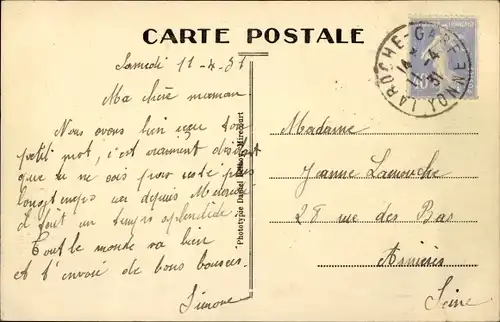 CARTE POSTALE
Samedi 11-4-31
Ma chère maman
Nous avons bien reçu ton
petit mot, c'est vraiment
que tu ne sois pas resté plus
longtemps car depuis Mercredi
il fait un temps splendide
Tout le monde va bien
et t'envoie de bons baisers.
Simone
Phototype Daniel Mirecourt
LAROCHE-GARE YONNE
14 11-4 31
40c
Madame
Jeanne Lamouche
28 rue des Bas
Asnières
Seine